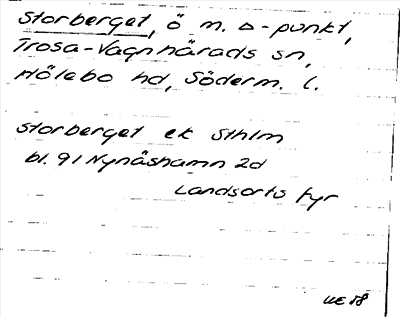 Storberget, ö m. △-punkt,
Trosa-Vagnhärads sn,
Hölebo hd, Söderm. l.
Storberget ek Sthlm
bl. 91 Nynäshamn 2d
Landsorts fyr
UE 58